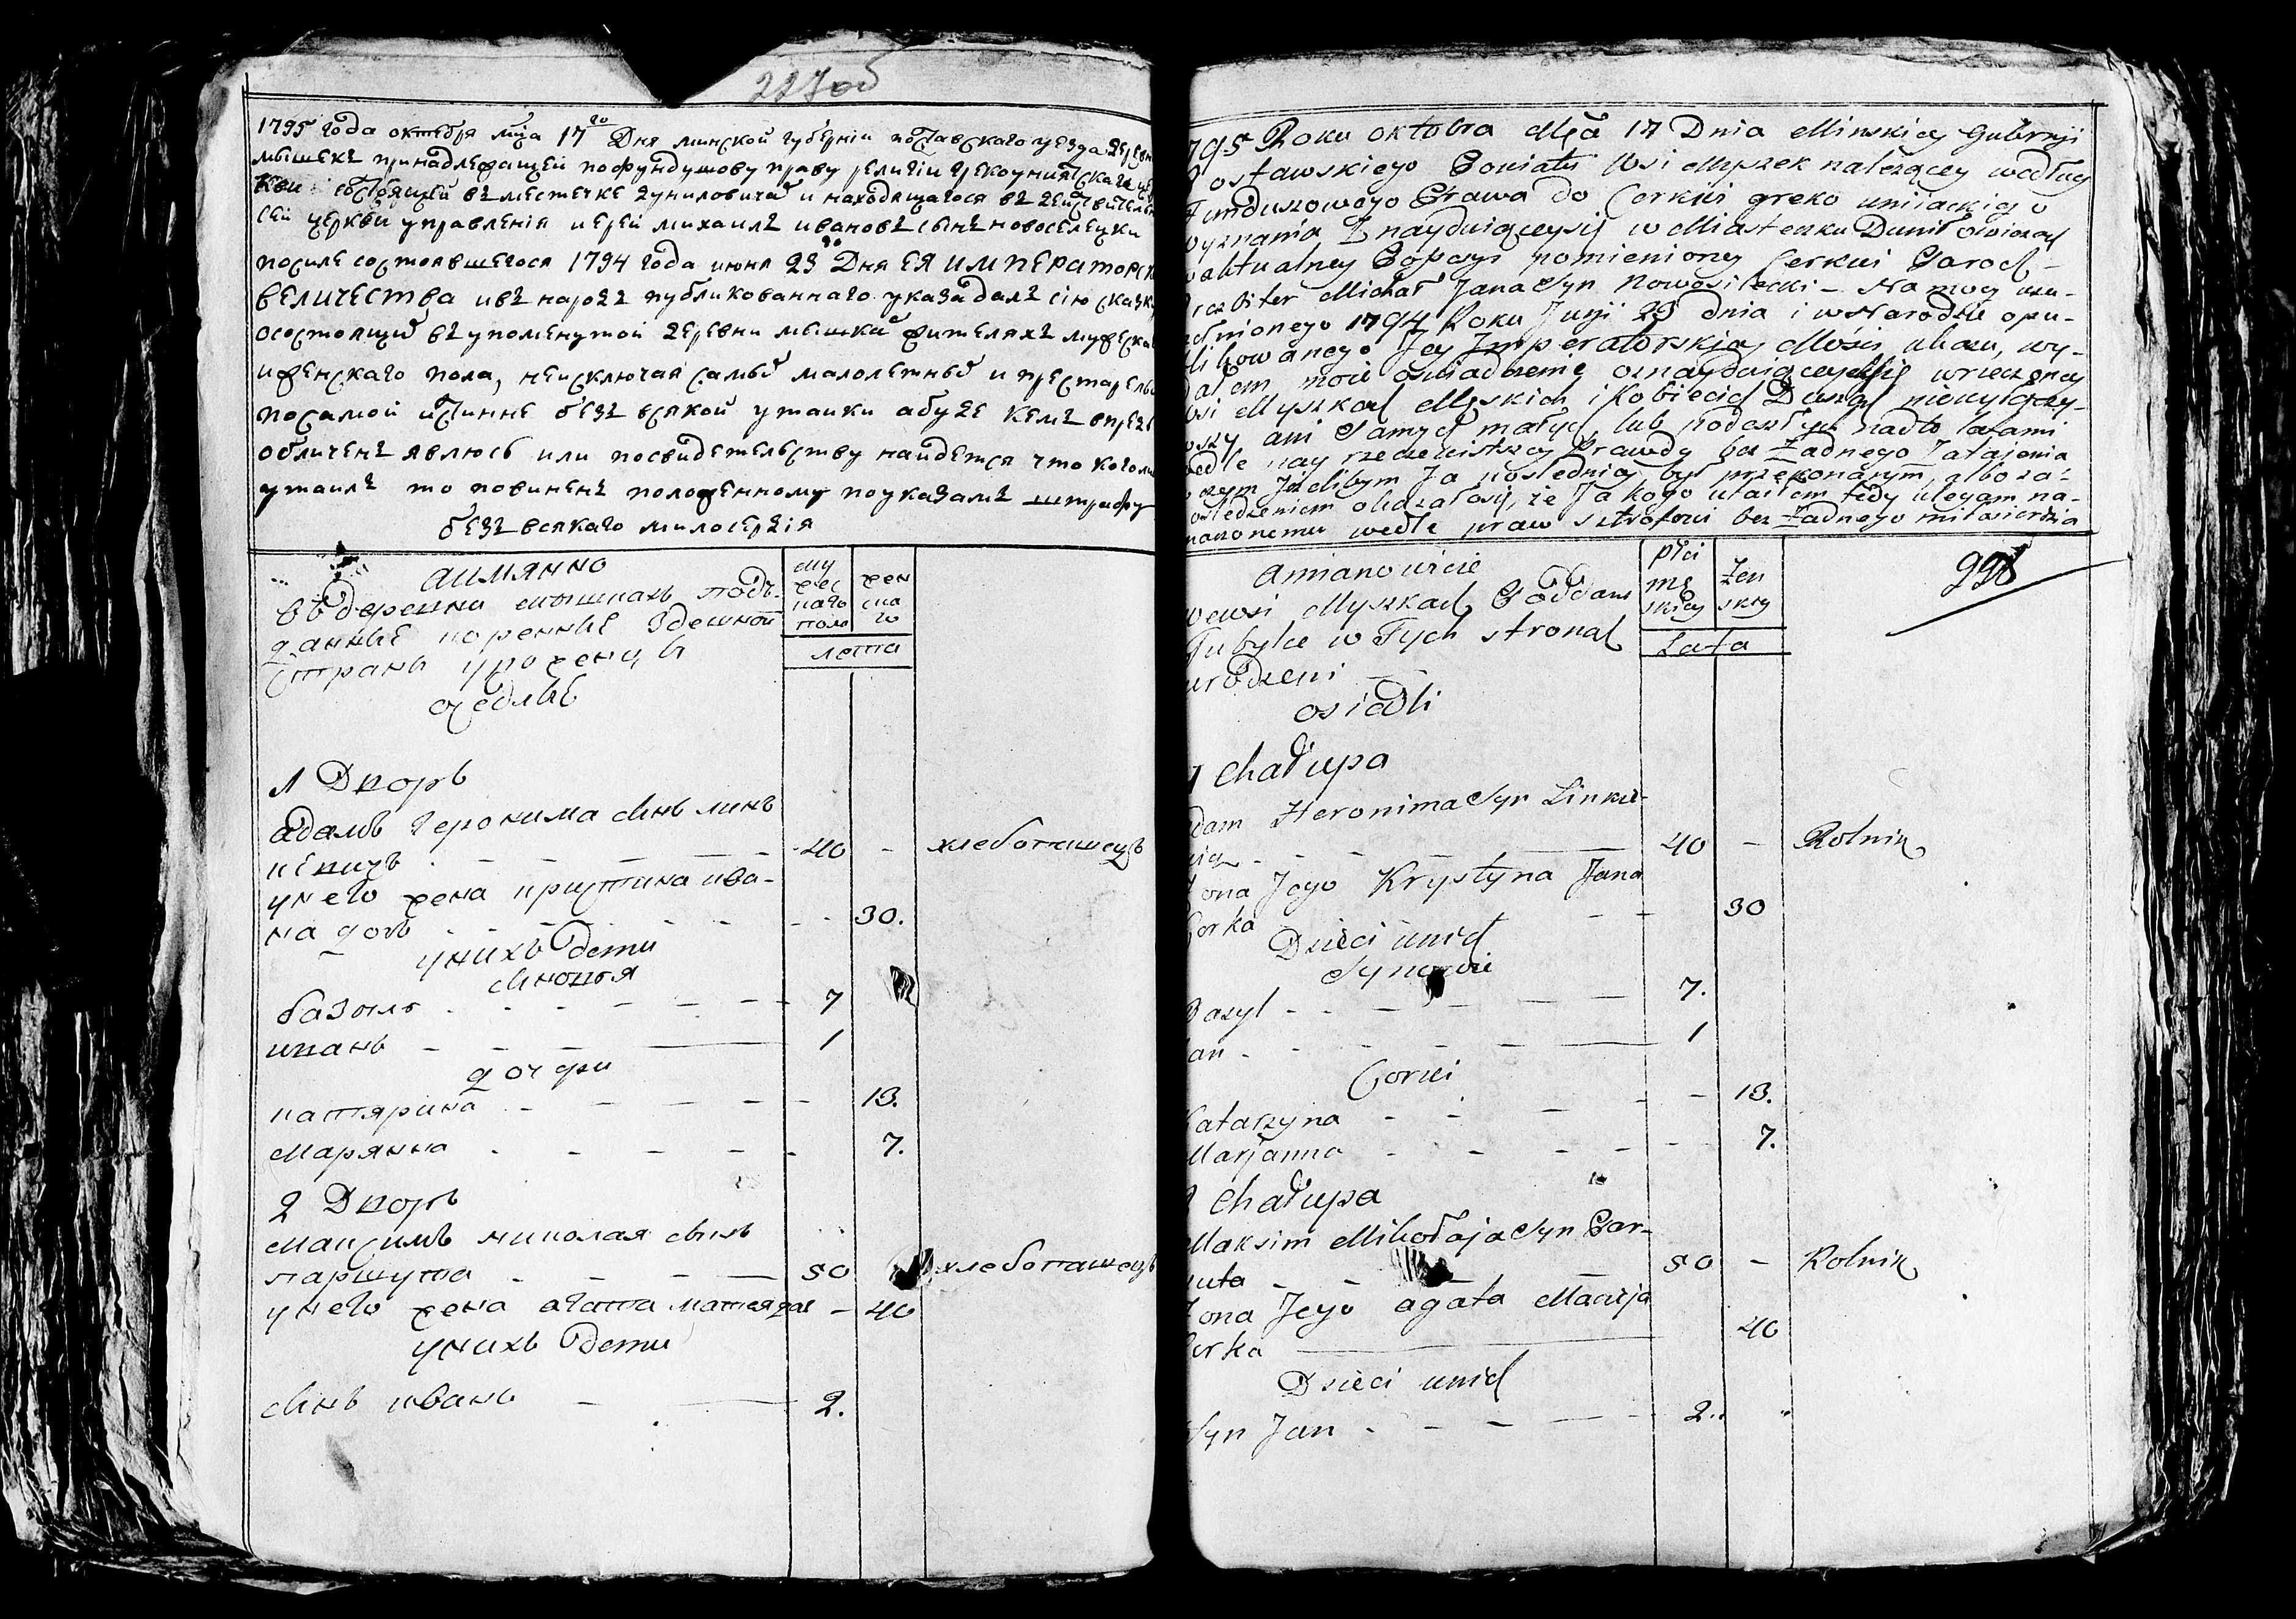 227 об
1795 года октебря мца 17го Дня минской губернiи поставскаго уезда дерев
мышекъ принадлежащей пофундушову праву религiи грекоунияцкаго
Кви состоящей въ местечке дуниловичах и находящагося въ действитель
сей церкви управленiя иерей михаилъ ивановъ сынъ новоселецки
посиле состоявшегося 1794 года июня 23го Дня ЕЯ ИМПЕРАТОРС
ВЕЛИЧЕСТВА ивъ народъ публикованнаго указа далъ сiю сказк
осостоящих въ упоменутой деревни мышках жителяхъ мужеска
иженскаго пола, неисключая самых малолетных и престарелы
посамой истинне безъ всякой утаики абуде кемъ впредь
обличенъ явлюсь или посвидетельству найдется что коголи
утаилъ то повиненъ положенному поуказамъ штрафу
безъ всякаго милосердiя
аимянно
въ деревни мышкахъ подъ-
данные коренные здешной
страны уроженцы
оседлые
му
жес
каго
пола
жен
ска
го
лета
1 Дворъ
адамъ геронима сынъ линь
кевичъ - - - - 40 - хлебопашецъ
унего жена криштина ива-
на дочь - - - - 30.
унихъ дети
сыновья
базыль - - - - 7
иванъ - - - 1
дочери
катярина - - - - 13.
Марянна - - - - 7.
2 Дворъ
максимъ николая сынъ
паршута - - - - 50 хлебопашецъ
унего жена агата матея доч - 40
унихъ дети
сынъ иванъ - - 2.
795 Roku oktobra Mca 17 Dnia Minskiey Gubernji
Postawskiego Powiatu Wsi Myszek należącey według
Funduszowego Prawa do Cerkwi greko uniackiego
wyznania Znayduiąceysię w Miasteczku Duniłowiczach
waktualney Popasyi pomienioney Cerkwi Paroch -
rezbiter Michał Jana Syn Nowosielecki - Na mocy
ełnionego 1794 Roku Junji 23 dnia i w Narodzie opu-
blikowanego Jey Imperatorskiey Mości ukazu, wy-
dałem moie oswiadczenie oznayduiącychsię wrzeczoney
wsi Myszkach Męskich i Kobiecich Duszach niewyłączy-
wszy ani samych małych, lub podeszłych nadto latami
wedle nay rzeczewistszey Prawdy bez Żadnego Zatajenia
oczem Jeslibym Ja poslednicy był przekonanym, albo za-
osledzeniem okazałosię, że Ja kogo utaiłem tedy ulegam na-
naczonemu wedle praw sztrafowi bez Żadnego miłosierdzia
Amianowicie
wewsi Myszkach Poddani
Tubylce w Tych stronach
urodzeni
osiedli
płci
mę
skiey
Żen
skiey
Lata
998
1 Chałupa
dam Heronima Syn Linkie-
wicz - - - - 40 - Rolnik
Żona Jego Krystyna Jana
Corka - - 30
Dzieci unich
Synowie
Bazyl - - - - 7.
Jan - - - - 1
Corki
Katarzyna - - - - 13.
Marjanna - - - - 7.
2 Chałupa
Maksim Mikołaja Syn Par-
szuta - - - - 50 - Rolnik
Żona Jego agata Macieja
Corka - 40
Dzieci unich
Syn Jan - - - - 2.